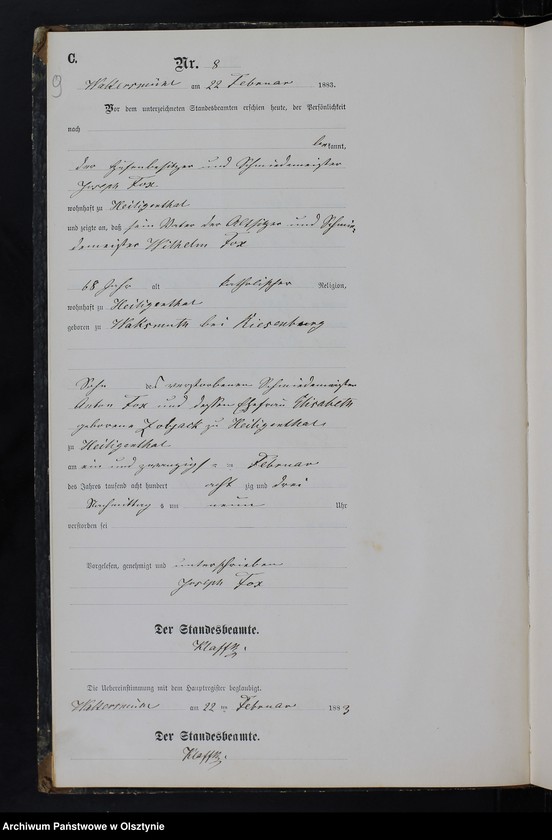 C.
Nr. 8
9
Woltersmühl am 22 Februar 1883.
Vor dem unterzeichneten Standesbeamten erschien heute, der Persönlichkeit
nach
bekannt,
der Hufenbesitzer und Schmiedemeister
Joseph Fox
wohnhaft zu Heiligenthal
und zeigte an, daß sein Vater der Altsitzer und Schmie-
demeister Wilhelm Fox
68 Jahr alt katholischer Religion,
wohnhaft zu Heiligenthal
geboren zu bei Riesenburg
Sohn des verstorbenen Schmiedemeister
Anton Fox und dessen Ehefrau Elisabeth
geborene zu Heiligenthal
zu Heiligenthal
am ein und zwanzigsten Februar
des Jahres tausend acht hundert acht zig und drei
Nachmittag s um neun Uhr
verstorben sei
Vorgelesen, genehmigt und unterschrieben
Joseph Fox
Der Standesbeamte.
Die Uebereinstimmung mit dem Hauptregister beglaubigt.
Woltersmühl am 22 ten Februar 1883
Der Standesbeamte.
Archiwum Państwowe w Olsztynie